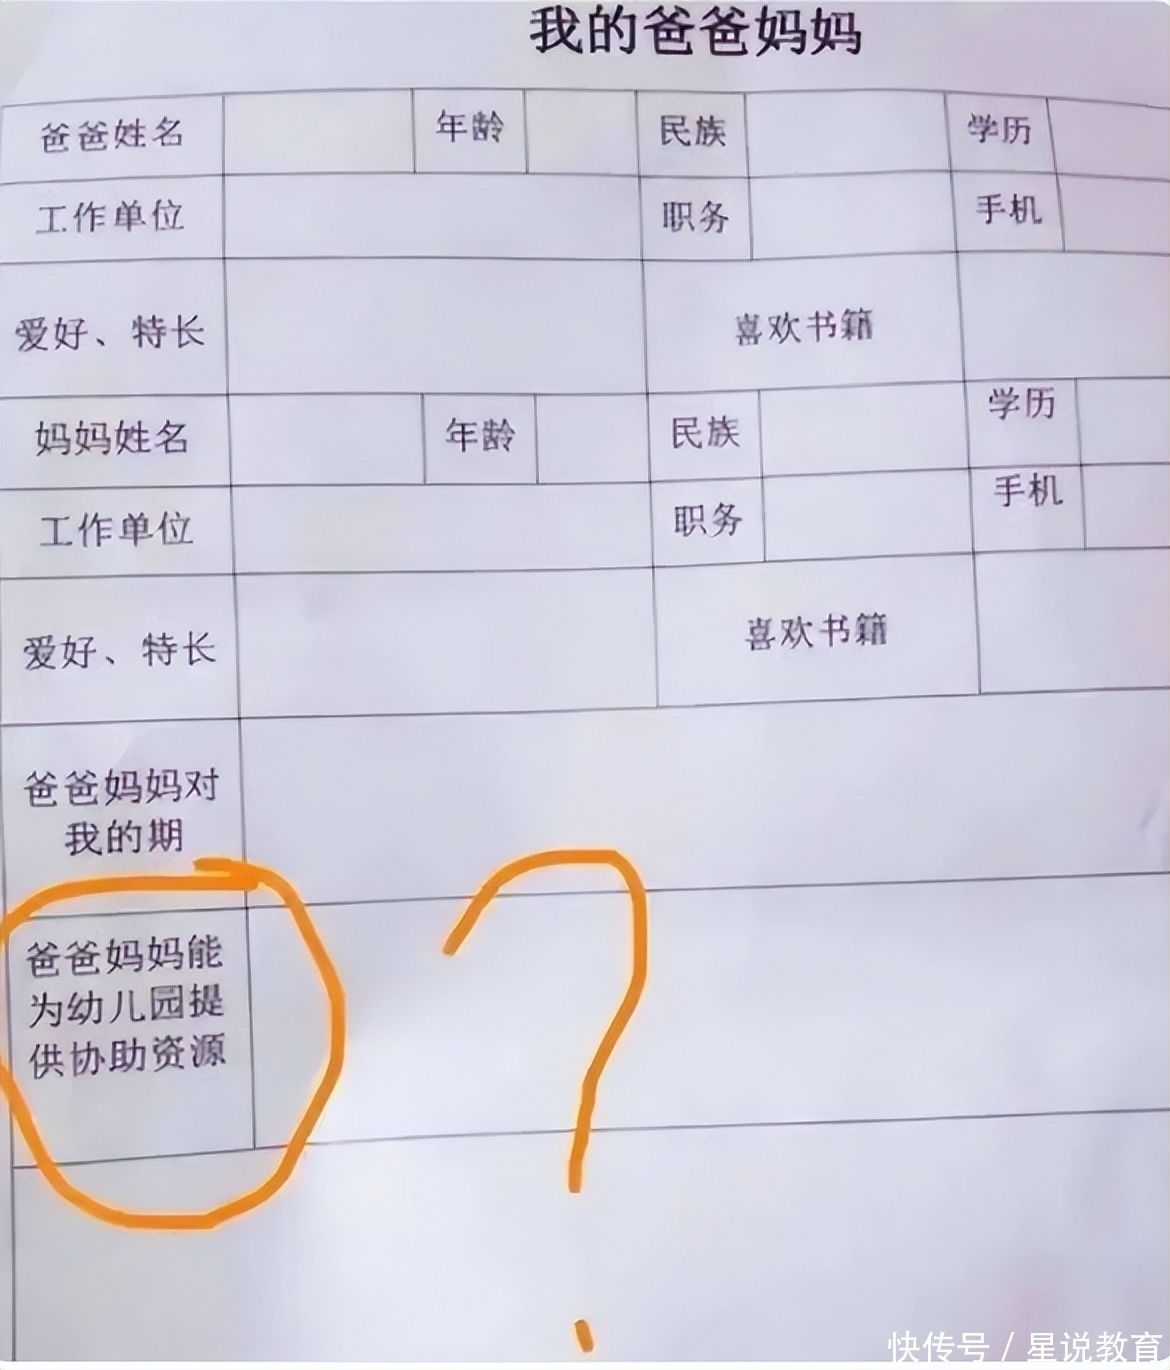 我的爸爸妈妈
爸爸姓名 年龄 民族 学历
工作单位 职务 手机
爱好、特长 喜欢书籍
妈妈姓名 年龄 民族 学历
工作单位 职务 手机
爱好、特长 喜欢书籍
爸爸妈妈对
我的期
爸爸妈妈能
为幼儿园提
供协助资源
?
快传号 / 星说教育